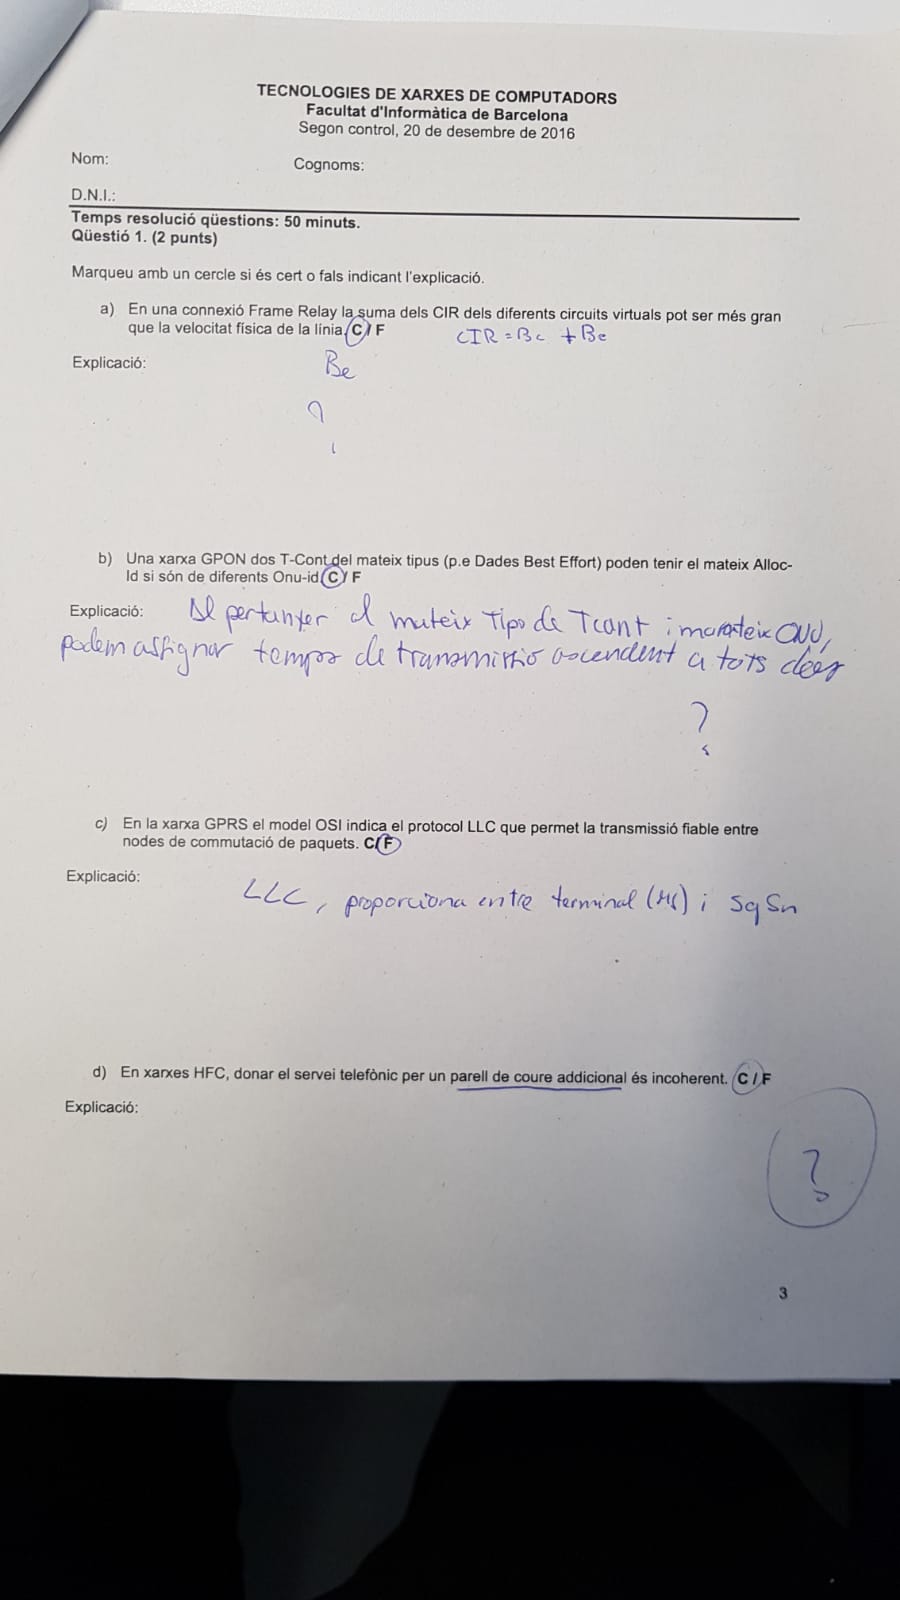 TECNOLOGIES DE XARXES DE COMPUTADORS
Facultat d'Informàtica de Barcelona
Segon control, 20 de desembre de 2016
Nom: Cognoms:
D.N.I.:
Temps resolució qüestions: 50 minuts.
Qüestió 1. (2 punts)
Marqueu amb un cercle si és cert o fals indicant l'explicació.
a) En una connexió Frame Relay la suma dels CIR dels diferents circuits virtuals pot ser més gran
que la velocitat física de la línia. C / F
CIR = Bc + Be
Explicació:
Be
?
b) Una xarxa GPON dos T-Cont del mateix tipus (p.e Dades Best Effort) poden tenir el mateix Alloc-
Id si són de diferents Onu-id. C / F
Explicació: Al pertanyer al mateix Tipo de Tcont i mateix ONU,
podem assignar temps de transmissió ascendent a tots
?
c) En la xarxa GPRS el model OSI indica el protocol LLC que permet la transmissió fiable entre
nodes de commutació de paquets. C / F
Explicació:
LLC, proporciona entre terminal (MS) i SgSn
d) En xarxes HFC, donar el servei telefònic per un parell de coure addicional és incoherent. C / F
Explicació:
?
3